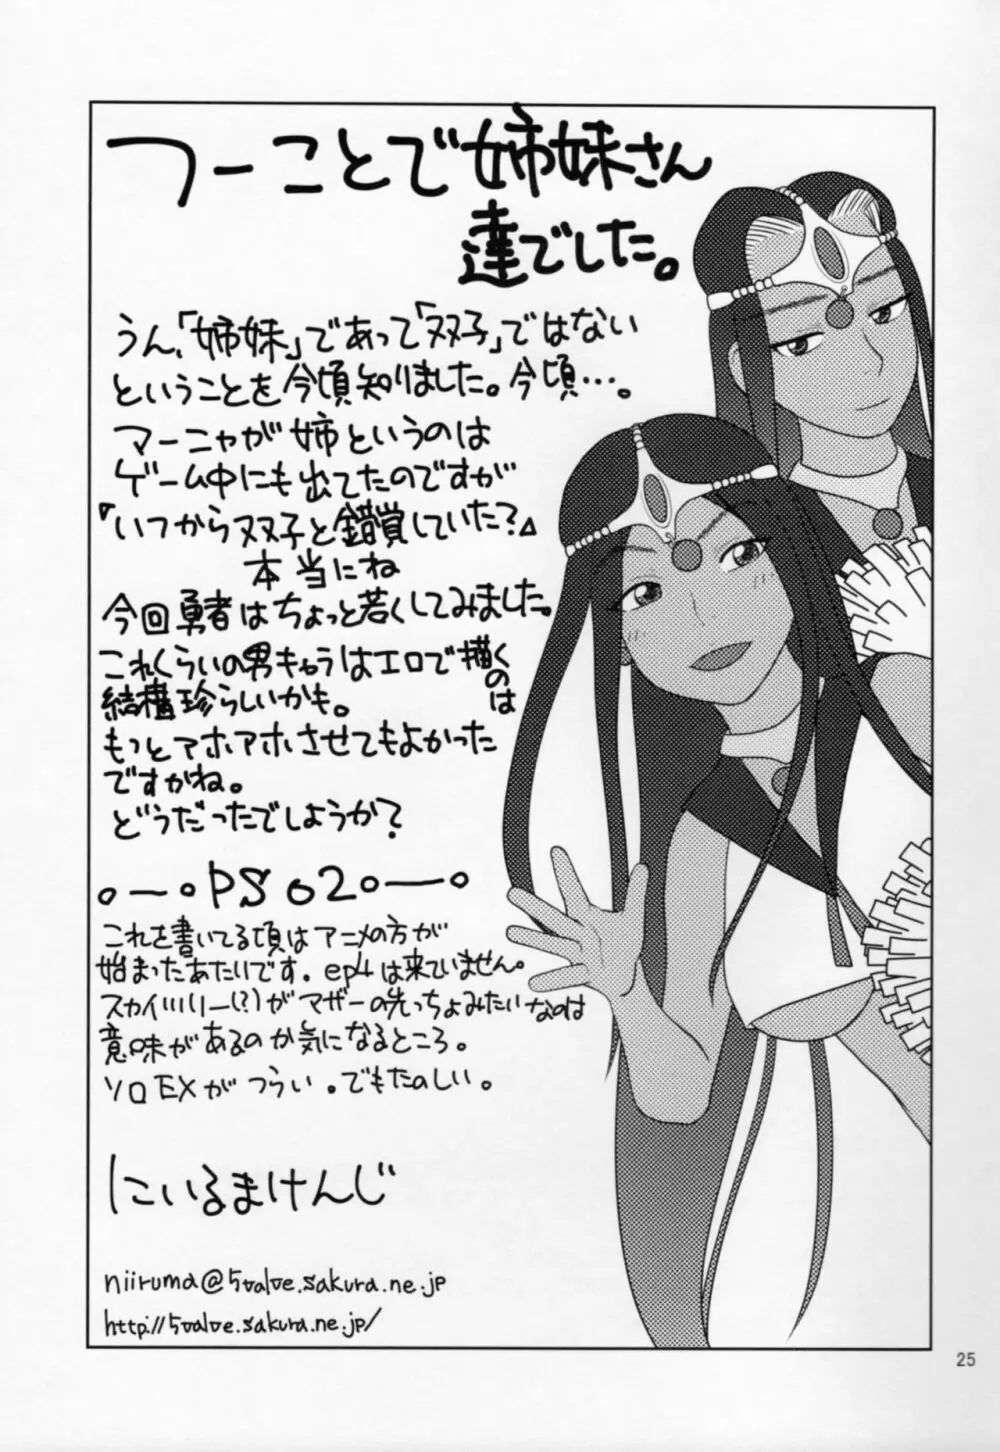 つーことで姉妹さん
達でした。
うん、「姉妹」であって「双子」ではない
ということを今頃知りました。今頃…。
マーニャが姉というのは
ゲーム中にも出てたのですが
『いつから双子と錯覚していた?』
本当にね
今回勇者はちょっと若くしてみました。
これくらいの男キャラはエロで描くのは
結構珍らしいかも。
もっとアホアホさせてもよかった
ですかね。
どうだったでしょうか?
PSO2
これを書いてる頃はアニメの方が
始まったあたいです。ep4は来ていません。
スカイリリー(?)がマザーの先っちょみたいなのは
意味があるのか気になるところ。
ソロEXがつらい。でもたのしい。
にいるまけんじ
niiruma@5valve.sakura.ne.jp
http://5valve.sakura.ne.jp/
25